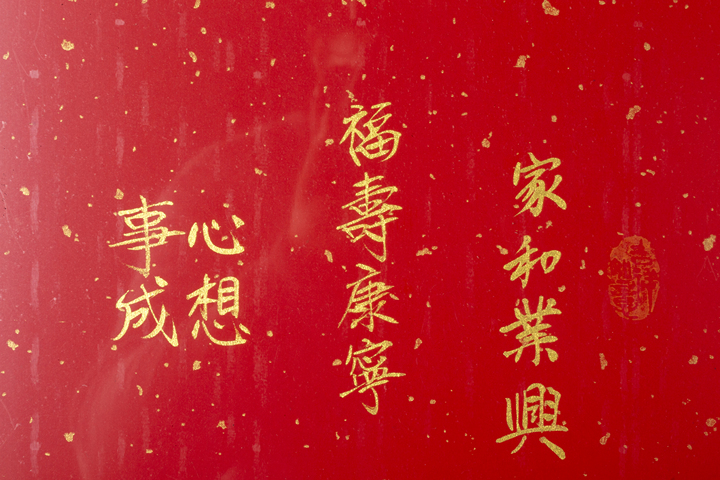 家和業興
福壽康寧
心想
事成